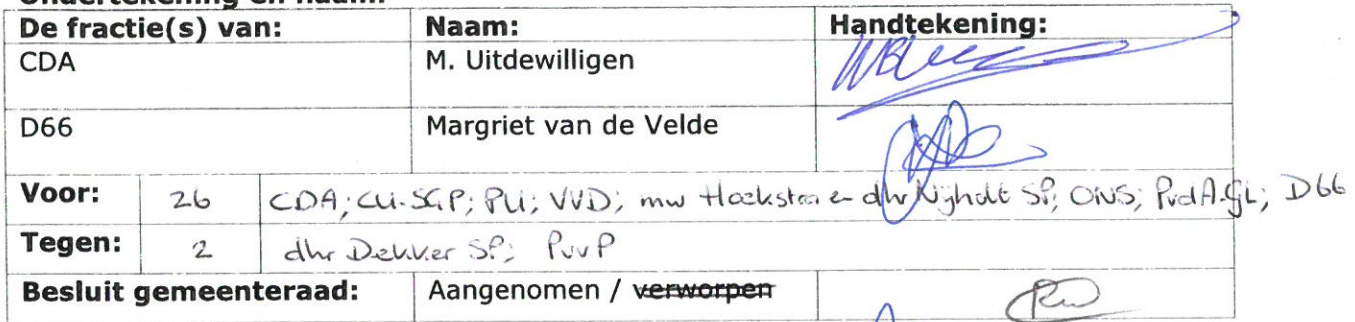 De fractie(s) van: Naam: Handtekening:
CDA M. Uitdewilligen
D66 Margriet van de Velde
Voor: 26 CDA; CU-SGP; PLI; VVD; mw Hoekstra en dhr Nijholt SP; ONS; PvdA-GL; D66
Tegen: 2 dhr Dekker SP; PvvP
Besluit gemeenteraad: Aangenomen / verworpen